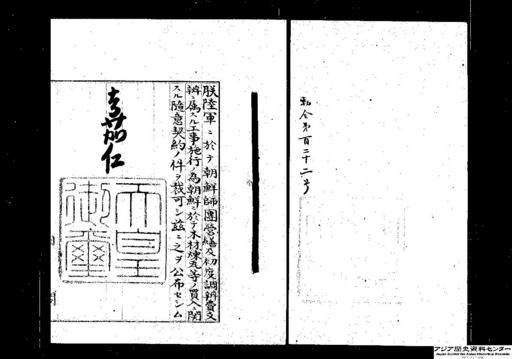 勅令第百二十二号
朕陸軍ニ於テ朝鮮師團營繕及初度調辨費支
辨ニ属スル工事施行ノ為朝鮮ニ於テ木材煉瓦等ノ買入ニ関
スル隨意契約ノ件ヲ裁可シ茲ニ之ヲ公布セシム
嘉仁
天皇御璽
アジア歴史資料センター
Japan Center for Asian Historical Records